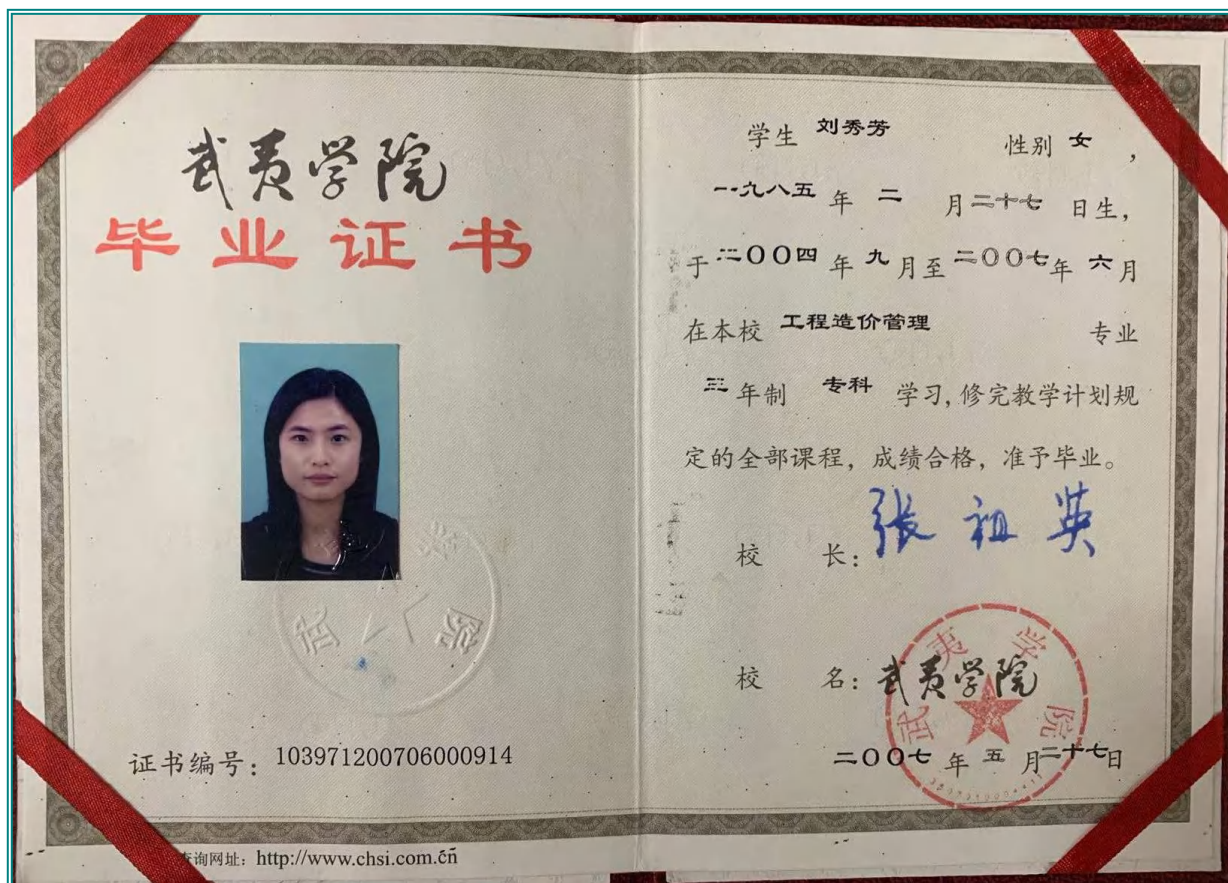 武夷学院
毕业证书
武夷学院
证书编号：103971200706000914
查询网址：http://www.chsi.com.cn
学生 刘秀芳 性别 女，
一九八五 年 二 月 二十七 日生，
于 二〇〇四 年 九 月至 二〇〇七 年 六 月
在本校 工程造价管理 专业
三 年制 专科 学习，修完教学计划规
定的全部课程，成绩合格，准予毕业。
校 长：张祖英
校 名：武夷学院
武夷学院
二〇〇七 年 五 月 二十七 日